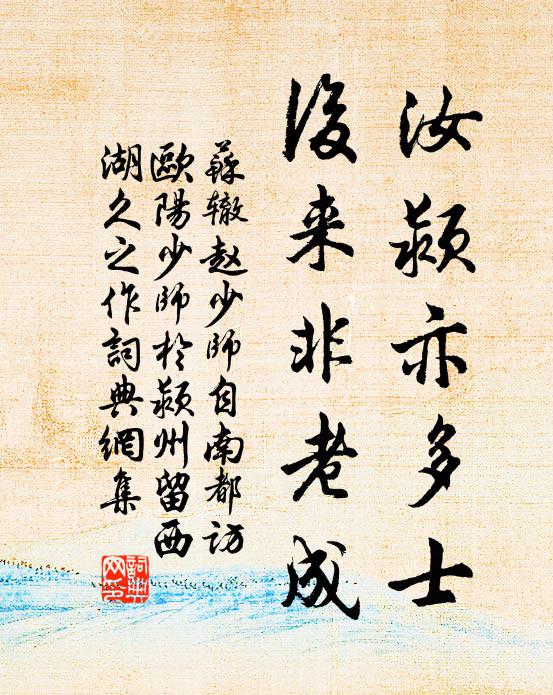 汝颍亦多士
後来非老成
蘇辙赵少师自南都访
歐陽少师於颍州留西
湖久之作詞典網集